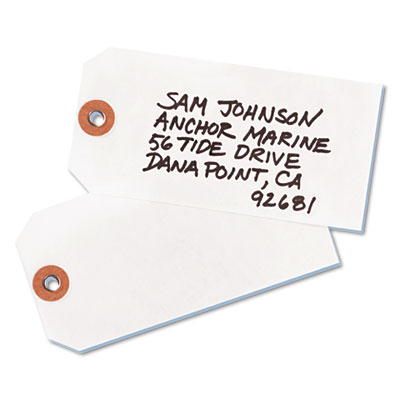 SAM JOHNSON
ANCHOR MARINE
56 TIDE DRIVE
DANA POINT, CA
92681